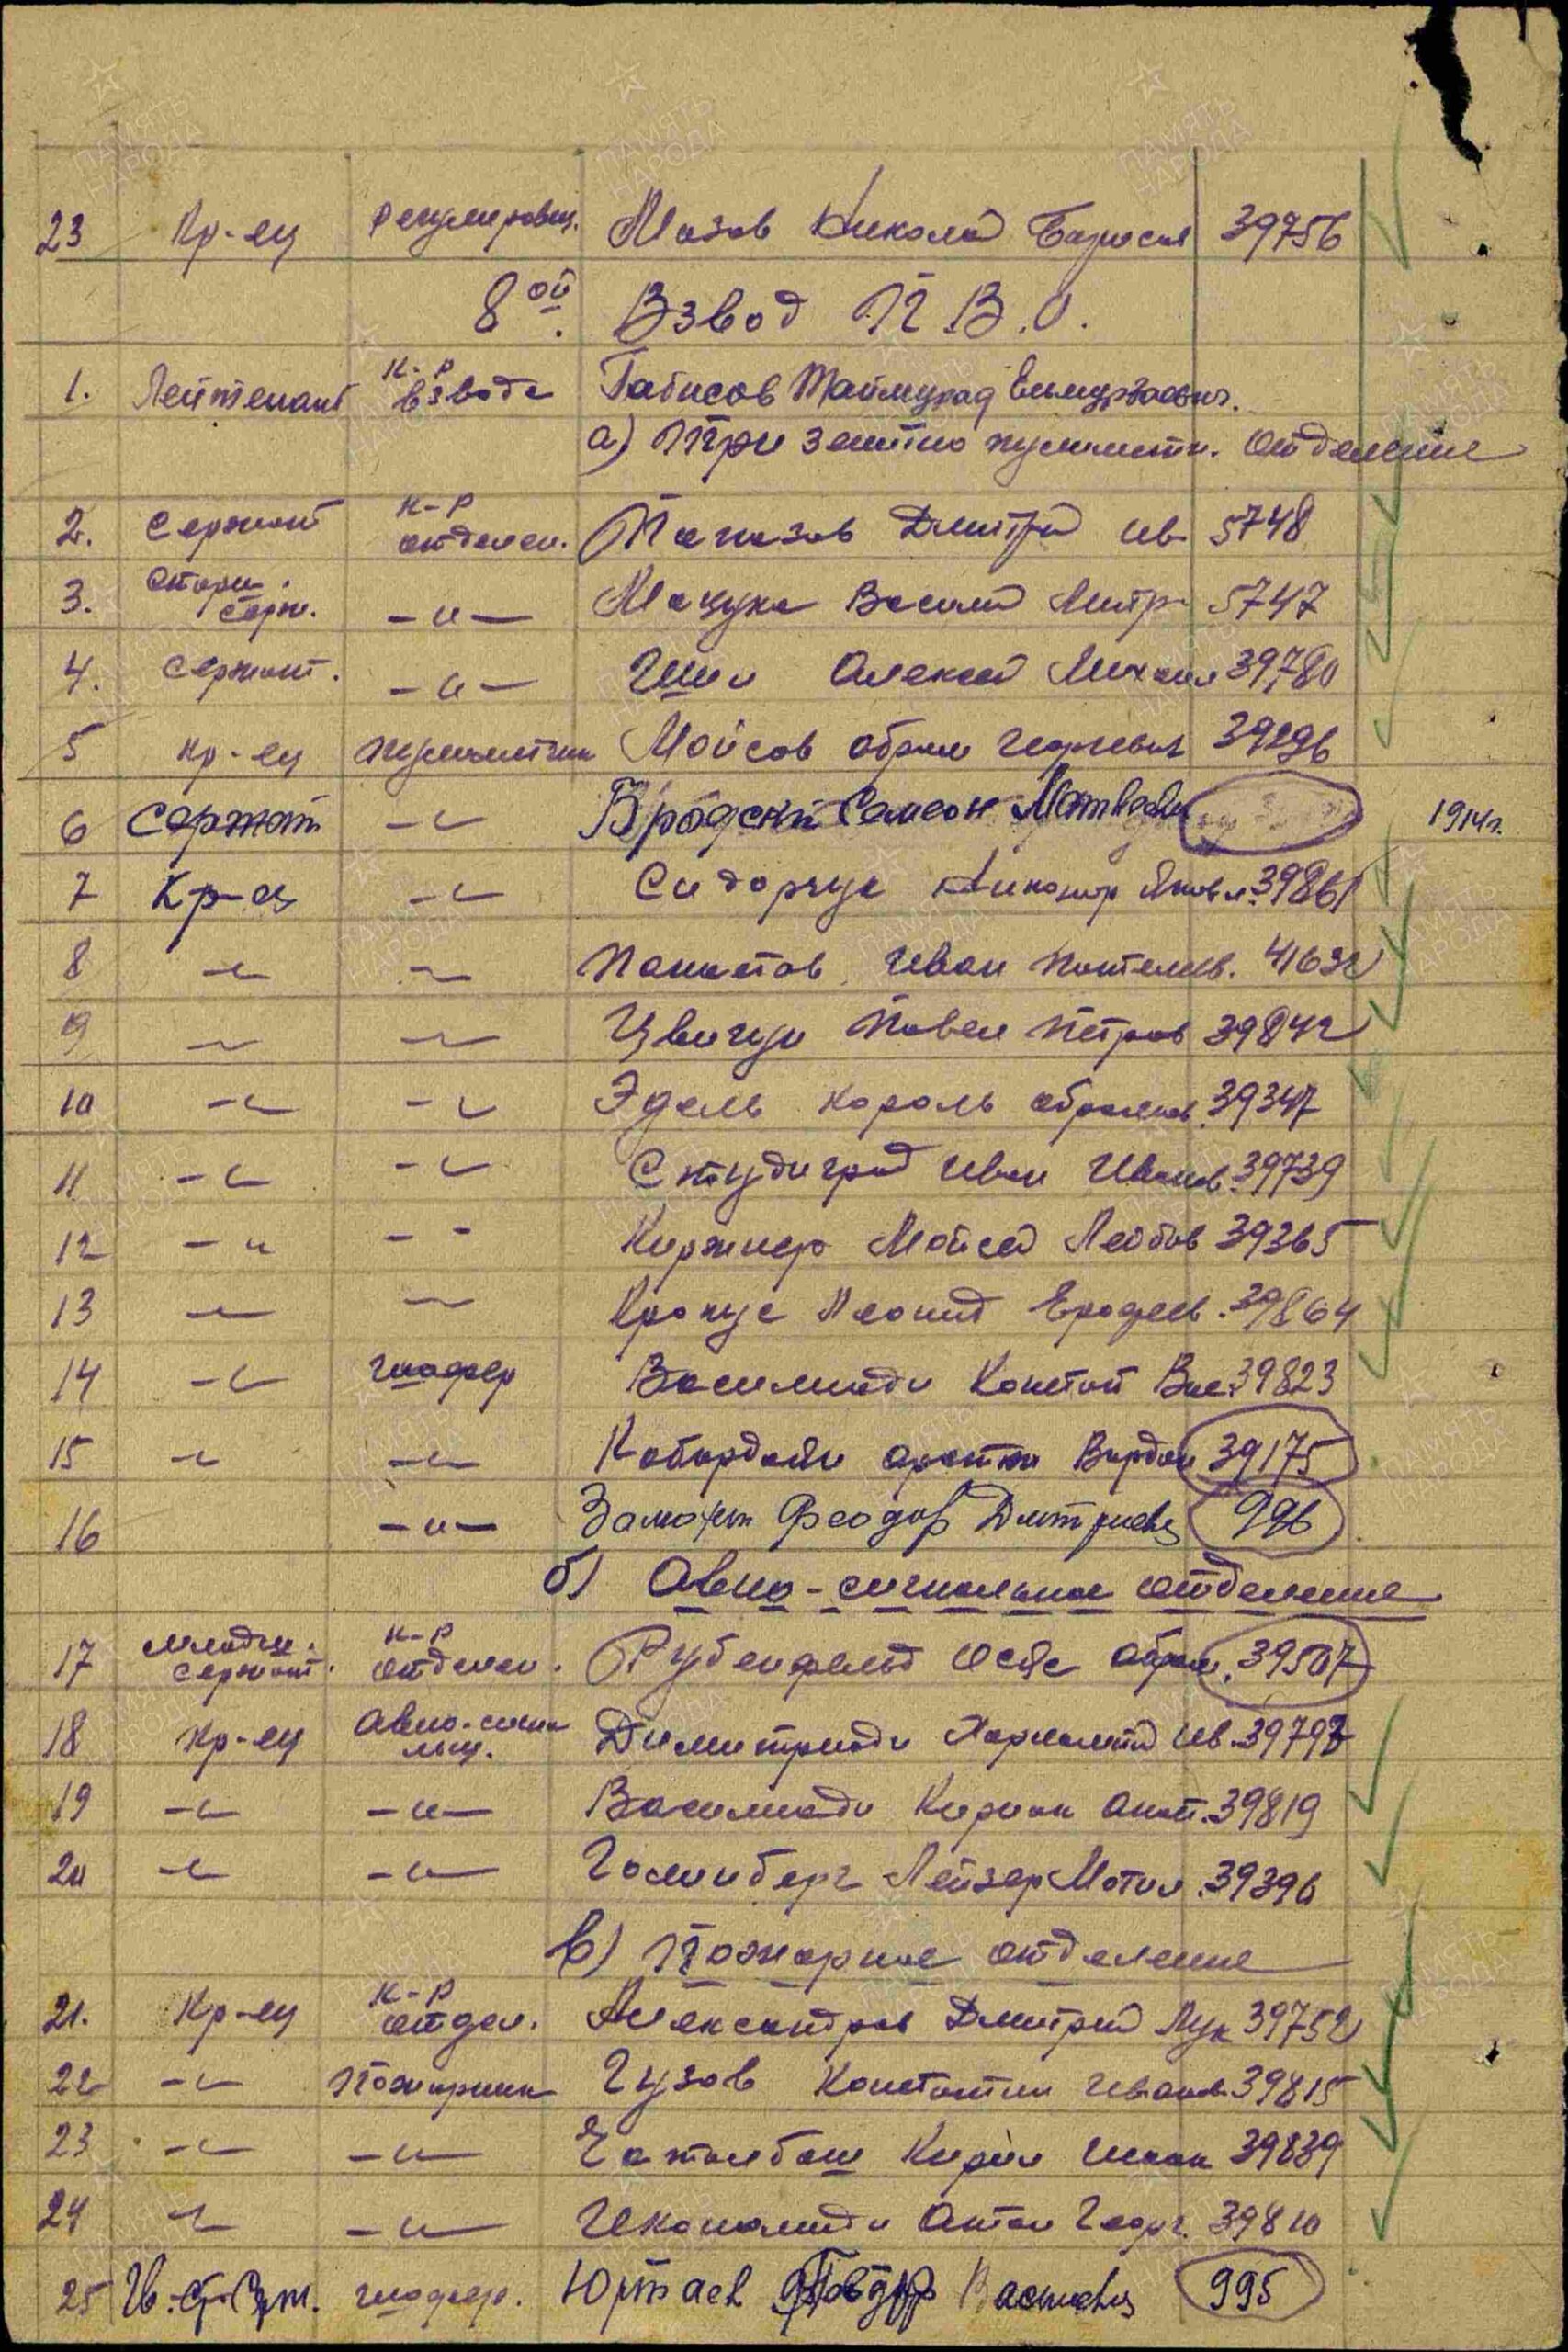 23 Кр-ец Регулировщ. Мазов Николай Борисов 39756
8ой. Взвод П.В.О.
1. Лейтенант к-р взвода Габисов Таймураз
а) Три зенитно пулеметн. отделение
2. Сержант к-р отделен. Папазов Дмитрий Ив 5748
3. Старш. серж. -и- Мацука Василий Митр 5747
4. Сержант. -и- Алексей Михаил 39780
5 кр-ец пулеметчик Мойсов Абрам Георгиевич
6 Сержант -и- Бродский Самсон Матвеев 1914г.
7 Кр-ец -и- Сидорчук Никонор Яковл. 39861
8 -и- -и- Иван Пантелеев. 41632
9 -и- -и- Павел Петров 39842
10 -и- -и- Эдель Король Абрамов. 39347
11 -и- -и- Иван Иванов. 39739
12 -и- -и- Киржнер Мойсей Лейбов 39365
13 -и- -и- Леонид Ерофеев. 39864
14 -и- шофер Василиади Констант Вас. 39823
15 -и- -и- 39175
16 -и- Феодор Дмитриевич 996
б) Авио-сигнальное отделение
17 младш. сержант. к-р отделен. Рубенфельд Осяс Абрам. 39507
18 Кр-ец Авио-сигнальщ. Димитриади Харлампий Ив. 39797
19 -и- -и- Василиади Кириак 39819
20 -и- -и- Гольнберг Лейзер Мотел. 39396
в) Пожарное отделение
21. Кр-ец к-р отдел. Александров Дмитрий Лук 39752
22 -и- Пожарник Гузов Константин Иванов. 39815
23 -и- -и- Кирил 39839
24 -и- -и- Икономиди Антон Георг. 39810
25 Гв.ст.Серж. шофер. Юртаев 995
ПАМЯТЬ НАРОДА